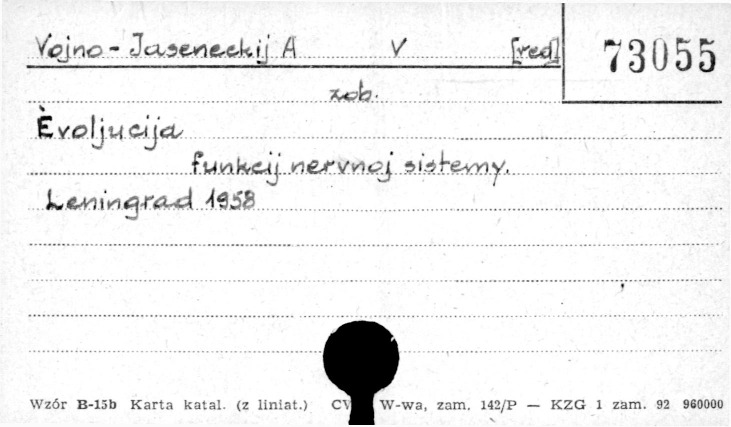 Vojno-Jaseneckij A V [red] 73055
zob.
Èvoljucija
funkcij nervnoj sistemy.
Leningrad 1958
Wzór B-15b Karta katal. (z liniat.) W-wa, zam. 142/P — KZG 1 zam. 92 960000